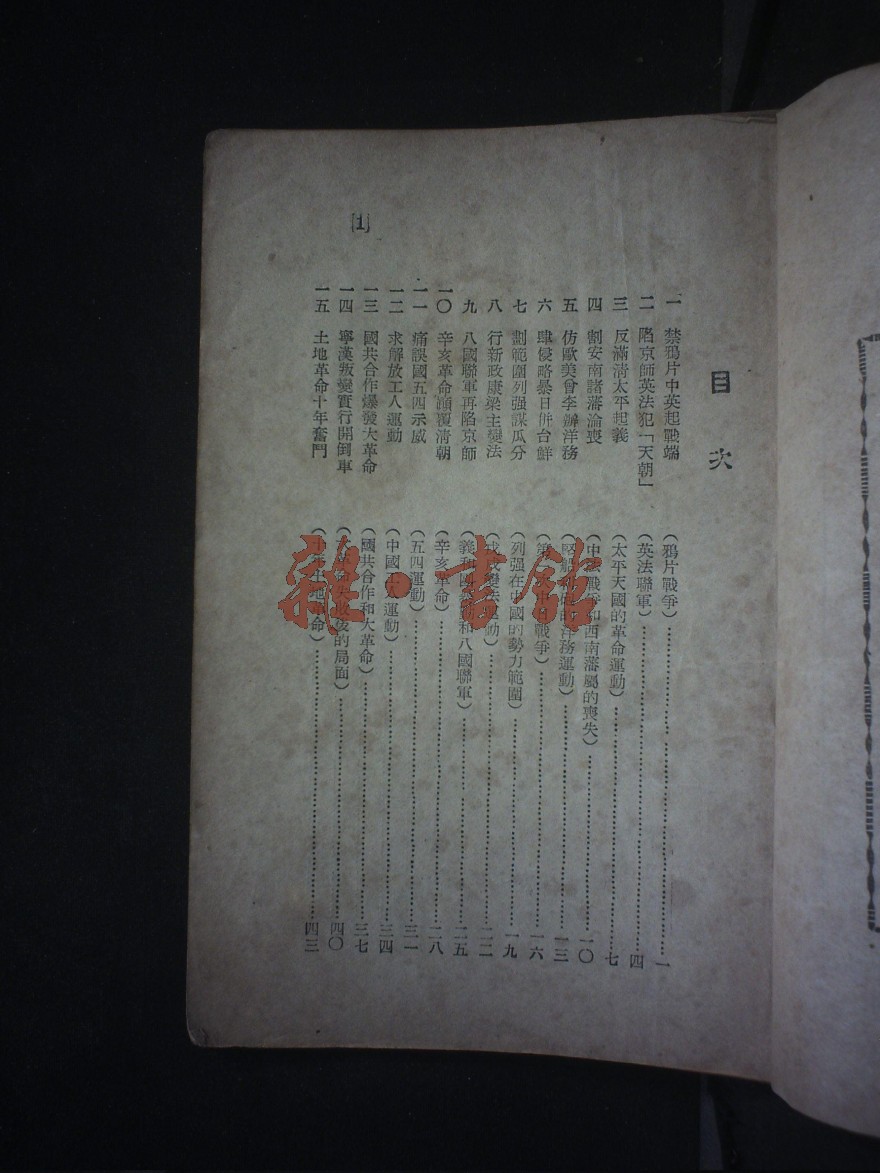 目次
一 禁鴉片中英起戰端 (鴉片戰爭)……一
二 陷京師英法犯「天朝」 (英法聯軍)……四
三 反滿清太平起義 (太平天國的革命運動)……七
四 割安南諸藩淪喪 (中法戰爭和西南藩屬的喪失)……一〇
五 仿歐美曾李辦洋務 (的洋務運動)……一三
六 肆侵略暴日併台鮮 (戰爭)……一六
七 劃範圍列强謀瓜分 (列强在中國的勢力範圍)……一九
八 行新政康梁主變法 (戊戌變法運動)……二二
九 八國聯軍再陷京師 (義和團和八國聯軍)……二五
一〇 辛亥革命顚覆淸朝 (辛亥革命)……二八
一一 痛誤國五四示威 (五四運動)……三一
一二 求解放工人運動 (中國工人運動)……三四
一三 國共合作爆發大革命 (國共合作和大革命)……三七
一四 寧漢叛變實行開倒車 (大革命失敗後的局面)……四〇
一五 土地革命十年奮鬥 (十年土地革命)……四三
[1]
雜·書館